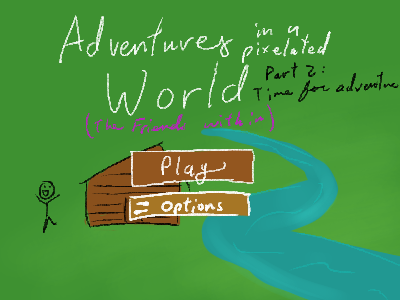 Adventures in a
pixelated
World
Part 2:
Time for adventure
(The Friends within)
Play
Options